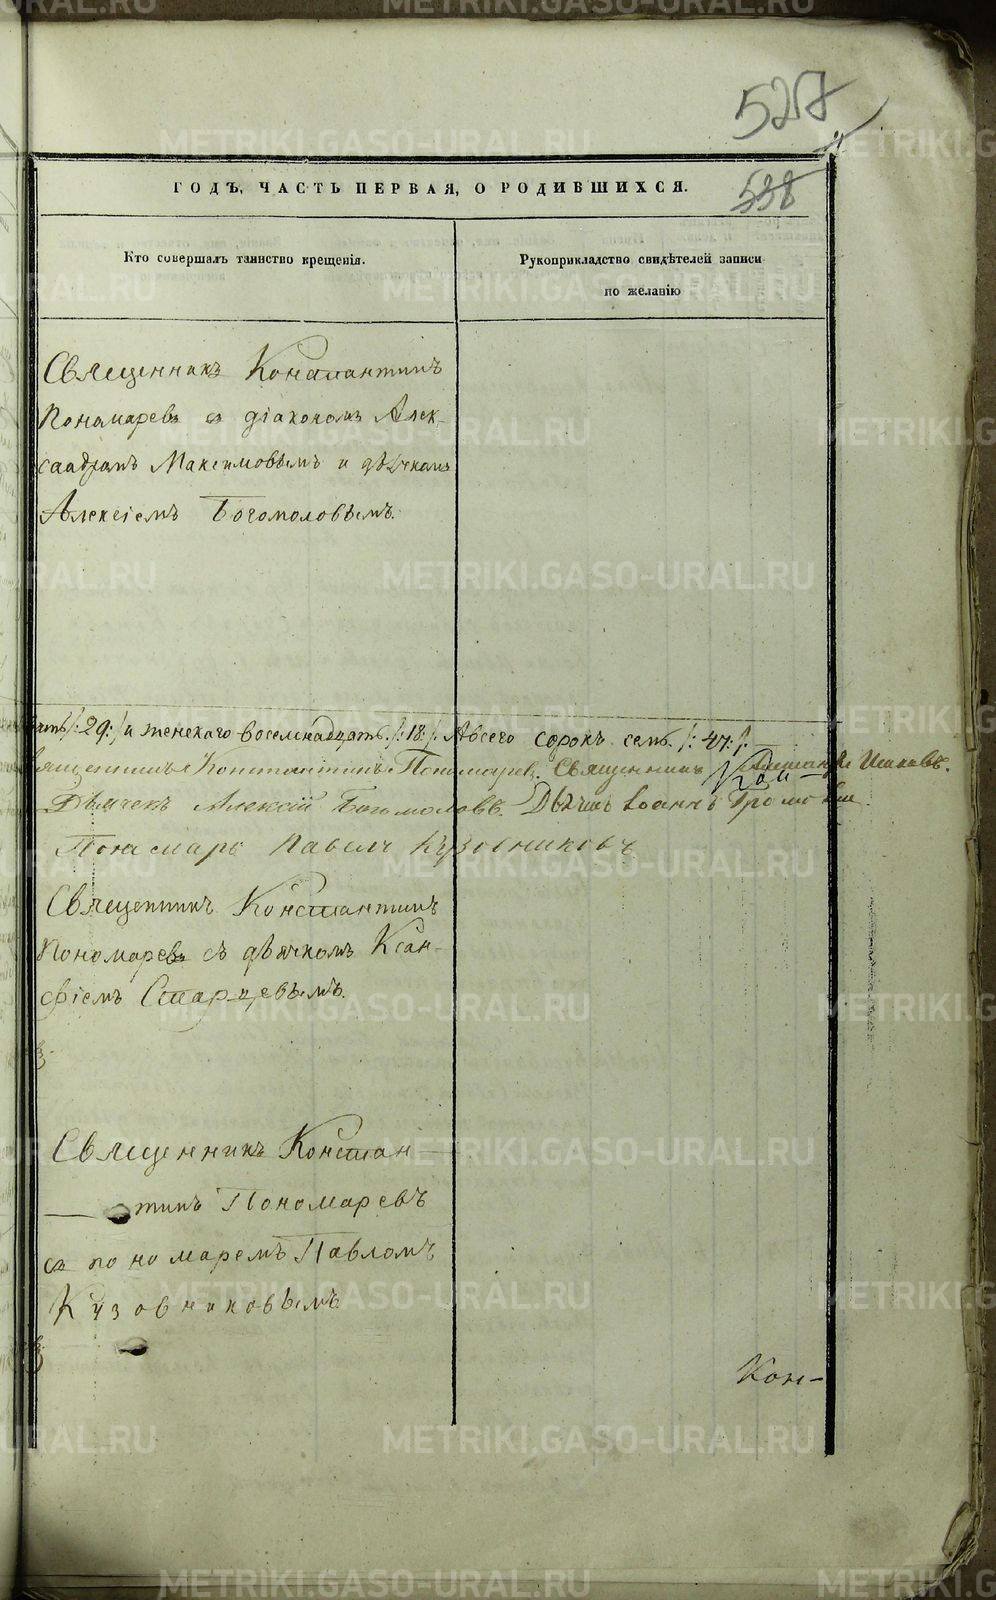 527
538
ГОДЪ, ЧАСТЬ ПЕРВАЯ, О РОДИВШИХСЯ.
Кто совершалъ таинство крещенія.
Рукоприкладство свидѣтелей записи
по желанію
Священникъ Константинъ
Пономаревъ съ діакономъ Алек-
сандромъ Максимовымъ и дьячкомъ
Алексіемъ Богомоловымъ.
/:29:/ и женскаго восемнадцать /:18:/. А всего сорокъ семь /:47:/.
Священникъ Константинъ Пономаревъ. Священникъ Исаковъ.
Кон-
Дьячекъ Алексій Богомоловъ. Дьячекъ Іоаннъ
Пономарь Павелъ Кузовниковъ
Священникъ Константинъ
Пономаревъ съ дьячкомъ Ксан-
фіемъ Старцевымъ.
Священникъ Констан-
тинъ Пономаревъ
съ пономаремъ Павломъ
Кузовниковымъ
Кон-
METRIKI.GASO-URAL.RU